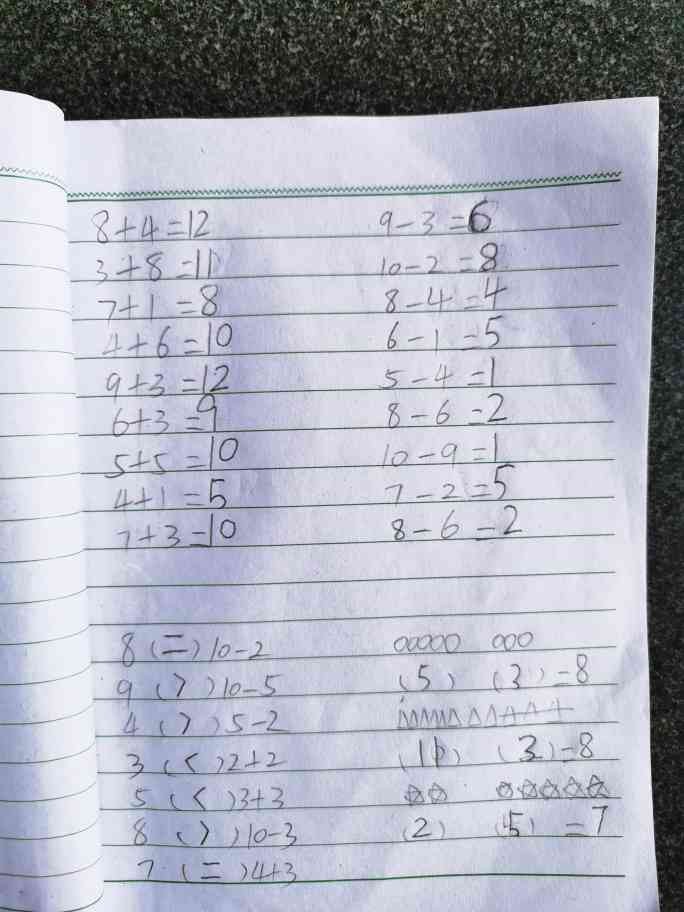 8+4=12 9-3=6
3+8=11 10-2=8
7+1=8 8-4=4
4+6=10 6-1=5
9+3=12 5-4=1
6+3=9 8-6=2
5+5=10 10-9=1
4+1=5 7-2=5
7+3=10 8-6=2
8(=)10-2
9(>)10-5 (5) (3)=8
4(>)5-2
3(<)2+2 (11) (3)=8
5(<)3+3
8(>)10-3 (2) (5)=7
7(=)4+3